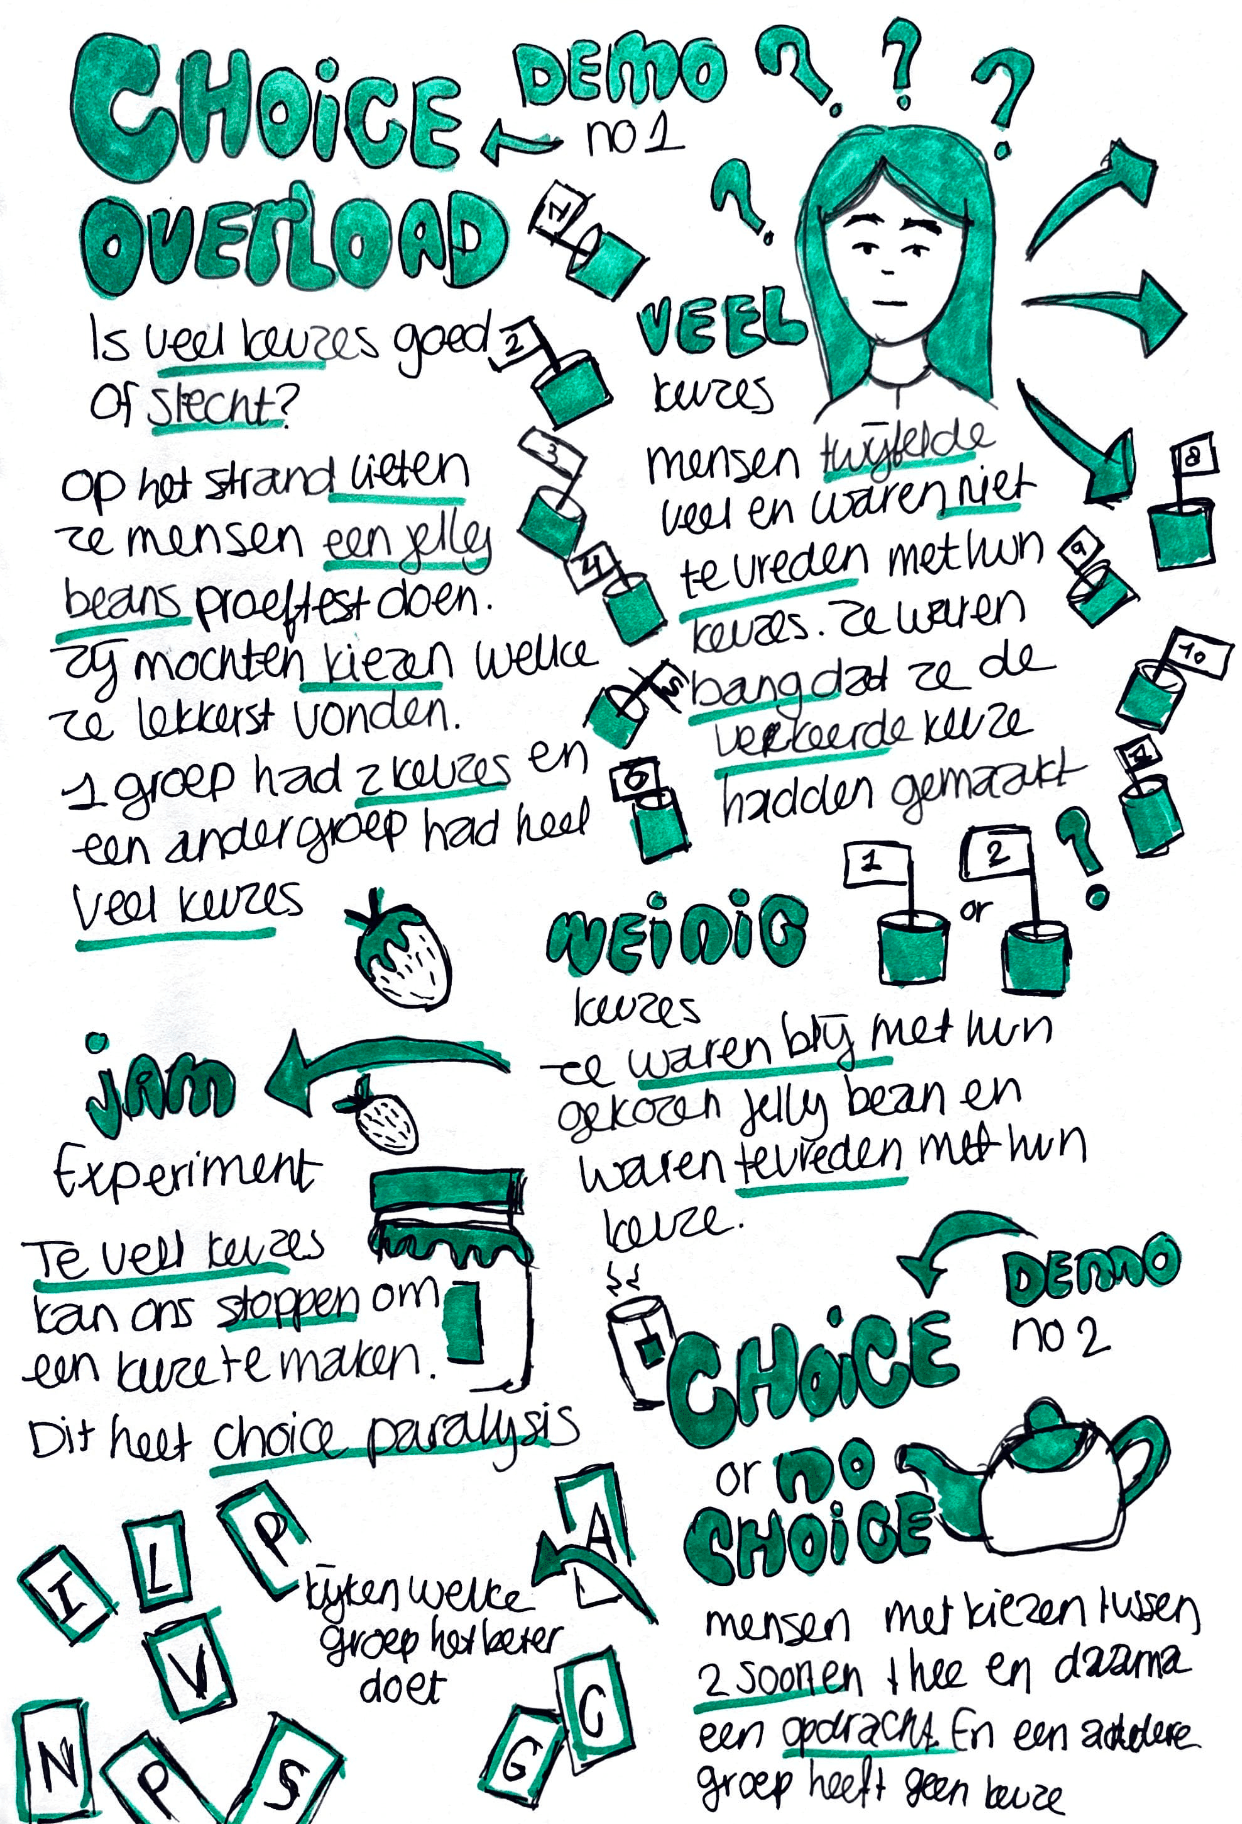 CHOICE
OVERLOAD
DEMO
no 1
? ? ? ?
Is veel keuzes goed
of slecht?
op het strand lieten
ze mensen een jelly
beans proeftest doen.
zij mochten kiezen welke
ze lekkerst vonden.
1 groep had 2 keuzes en
een ander groep had heel
veel keuzes
1
2
3
4
5
6
VEEL
keuzes
mensen twijfelde
veel en waren niet
tevreden met hun
keuzes. Ze waren
bang dat ze de
verkeerde keuze
hadden gemaakt
8
9
10
WEINIG
keuzes
1 or 2 ?
ze waren blij met hun
gekozen jelly bean en
waren tevreden met hun
keuze.
jAM
Experiment
Te veel keuzes
kan ons stoppen om
een keuze te maken.
Dit heet choice paralysis
DEMO
no 2
CHOiCE
or no
CHOiCE
mensen met kiezen tussen
2 soorten thee en daarna
een opdracht. En een andere
groep heeft geen keuze
kijken welke
groep het beter
doet
I
L
P
A
V
N
P
S
G
C